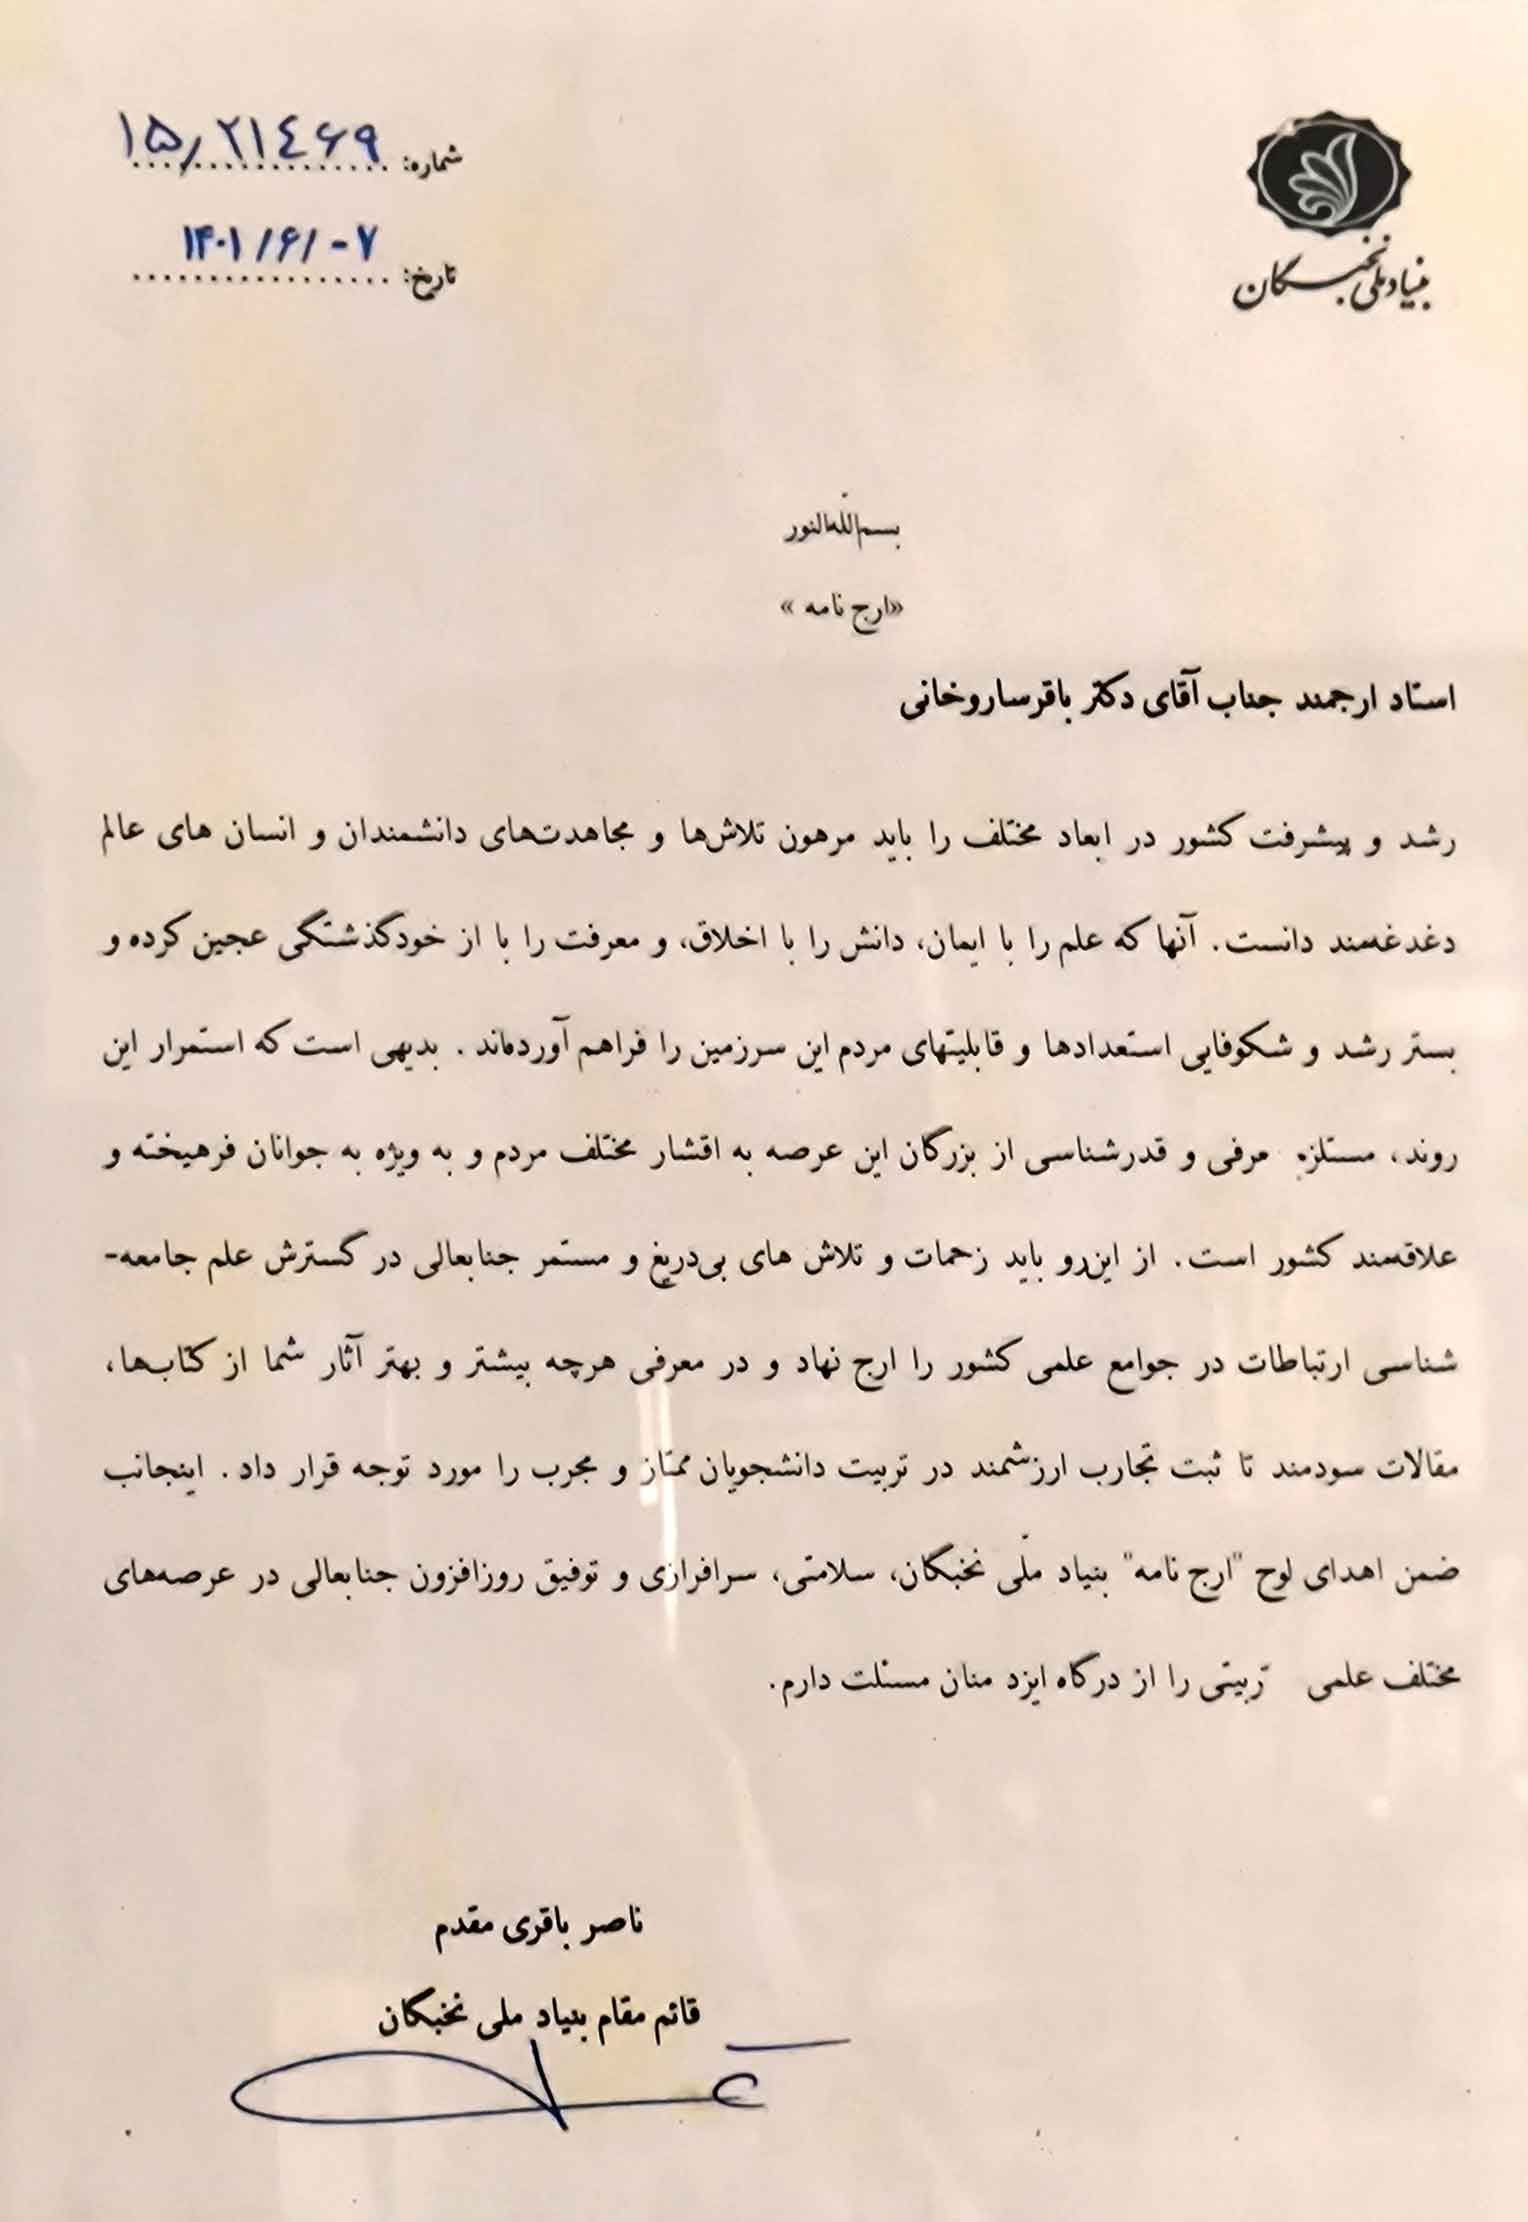 بنیاد ملی نخبگان
شماره: ۱۵٫۲۱۴۶۹
تاریخ: ۱۴۰۱/۶/-۷
بسم‌اللّه‌النور
«ارج نامه»
استاد ارجمند جناب آقای دکتر باقرساروخانی
رشد و پیشرفت کشور در ابعاد مختلف را باید مرهون تلاش‌ها و مجاهدت‌های دانشمندان و انسان های عالم
دغدغه‌مند دانست. آنها که علم را با ایمان، دانش را با اخلاق، و معرفت را با از خودگذشتگی عجین کرده و
بستر رشد و شکوفایی استعدادها و قابلیتهای مردم این سرزمین را فراهم آورده‌اند. بدیهی است که استمرار این
روند، مستلزم مرفی و قدرشناسی از بزرگان این عرصه به اقشار مختلف مردم و به ویژه به جوانان فرهیخته و
علاقه‌مند کشور است. از این‌رو باید زحمات و تلاش های بی‌دریغ و مستمر جنابعالی در گسترش علم جامعه-
شناسی ارتباطات در جوامع علمی کشور را ارج نهاد و در معرفی هرچه بیشتر و بهتر آثار شما از کتاب‌ها،
مقالات سودمند تا ثبت تجارب ارزشمند در تربیت دانشجویان ممتاز و مجرب را مورد توجه قرار داد. اینجانب
ضمن اهدای لوح "ارج نامه" بنیاد ملّی نخبگان، سلامتی، سرافرازی و توفیق روزافزون جنابعالی در عرصه‌های
مختلف علمی تربیتی را از درگاه ایزد منان مسئلت دارم.
ناصر باقری مقدم
قائم مقام بنیاد ملی نخبگان